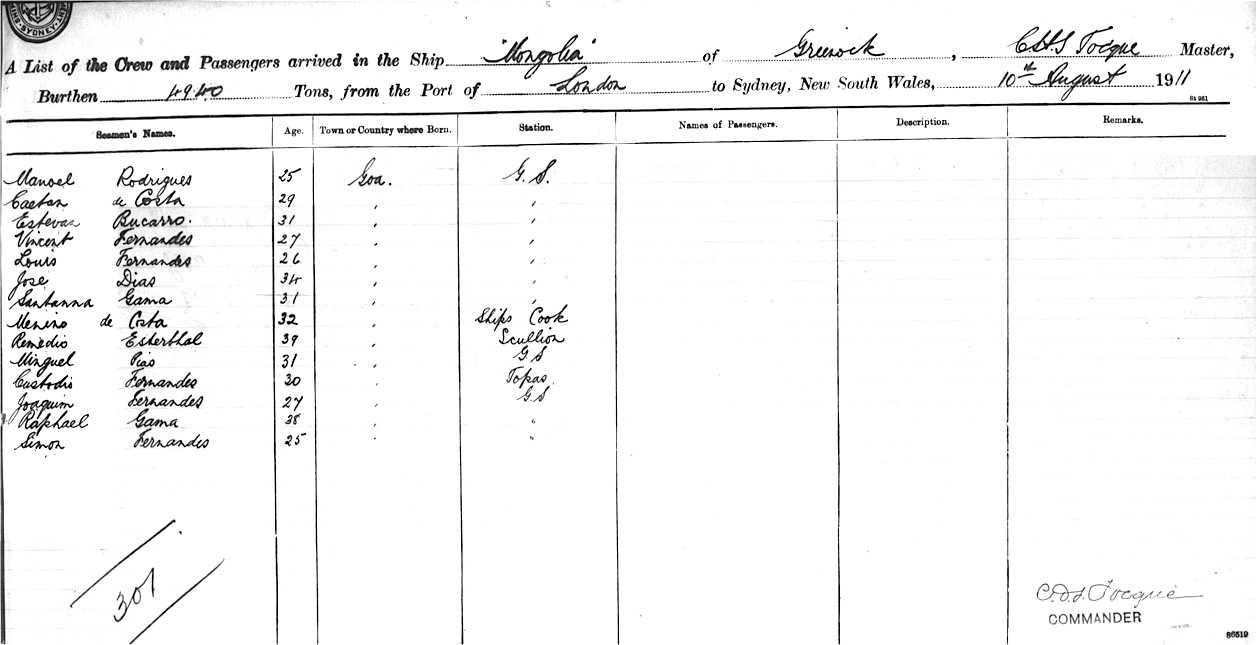 SYDNEY
A List of the Crew and Passengers arrived in the Ship "Mongolia" of Greenock, Tocque Master,
Burthen 4940 Tons, from the Port of London to Sydney, New South Wales, 10th August 1911
Seamen's Names. Age. Town or Country where Born. Station. Names of Passengers. Description. Remarks.
Manoel Rodrigues 25 Goa. G.S.
Caetan de Costa 29 " "
Estevan Bucarro. 31 " "
Vincent Fernandes 27 " "
Louis Fernandes 26 " "
Jose Dias 34 " "
Santanna Gama 31 " "
Menino de Costa 32 " Ships Cook
Remedio Esterthal 39 " Scullion
Minguel Pias 31 " G S
Custodio Fernandes 30 " Topas
Joaquim Fernandes 27 " G S
Raphael Gama 38 " "
Simon Fernandes 25 " "
301
Tocque
COMMANDER
86519